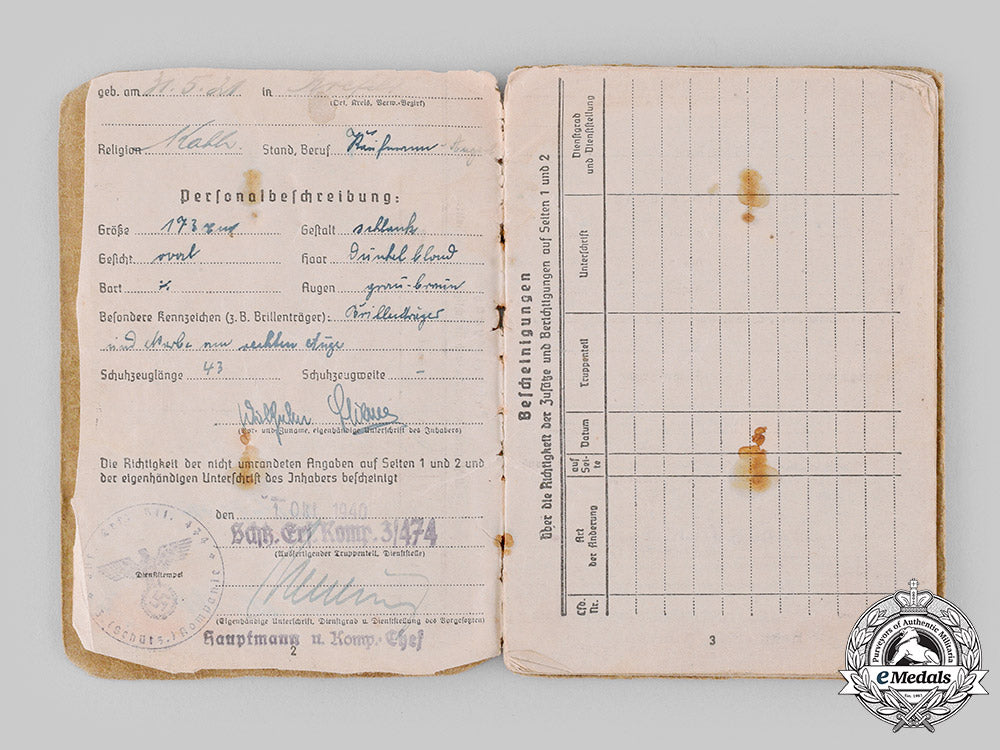 geb. am 31.5.21 in
(Ort, Kreis, Verw.-Bezirk)
Religion Kath. Stand, Beruf Kaufmann
Personalbeschreibung:
Größe 173 cm Gestalt schlank
Gesicht oval Haar dunkelblond
Bart ./. Augen grau-braun
Besondere Kennzeichen (z. B. Brillenträger): Brillenträger
und Narbe am rechten Auge
Schuhzeuglänge 43 Schuhzeugweite –
(Vor- und Zuname, eigenhändige Unterschrift des Inhabers)
Die Richtigkeit der nicht umrandeten Angaben auf Seiten 1 und 2 und
der eigenhändigen Unterschrift des Inhabers bescheinigt
den 1. Okt. 1940
Schtz. Ers. Komp. 3/474
(Ausfertigender Truppenteil, Dienststelle)
Dienststempel
(Eigenhändige Unterschrift, Dienstgrad u. Dienststellung des Vorgesetzten)
Hauptmann u. Komp.-Chef
2
Bescheinigungen
über die Richtigkeit der Zusätze und Berichtigungen auf Seiten 1 und 2
Lfd. Nr.
Art der Änderung
auf Sei-te
Datum
Truppenteil
Unterschrift
Dienstgrad und Dienststellung
3
Purveyors of Authentic Militaria
eMedals